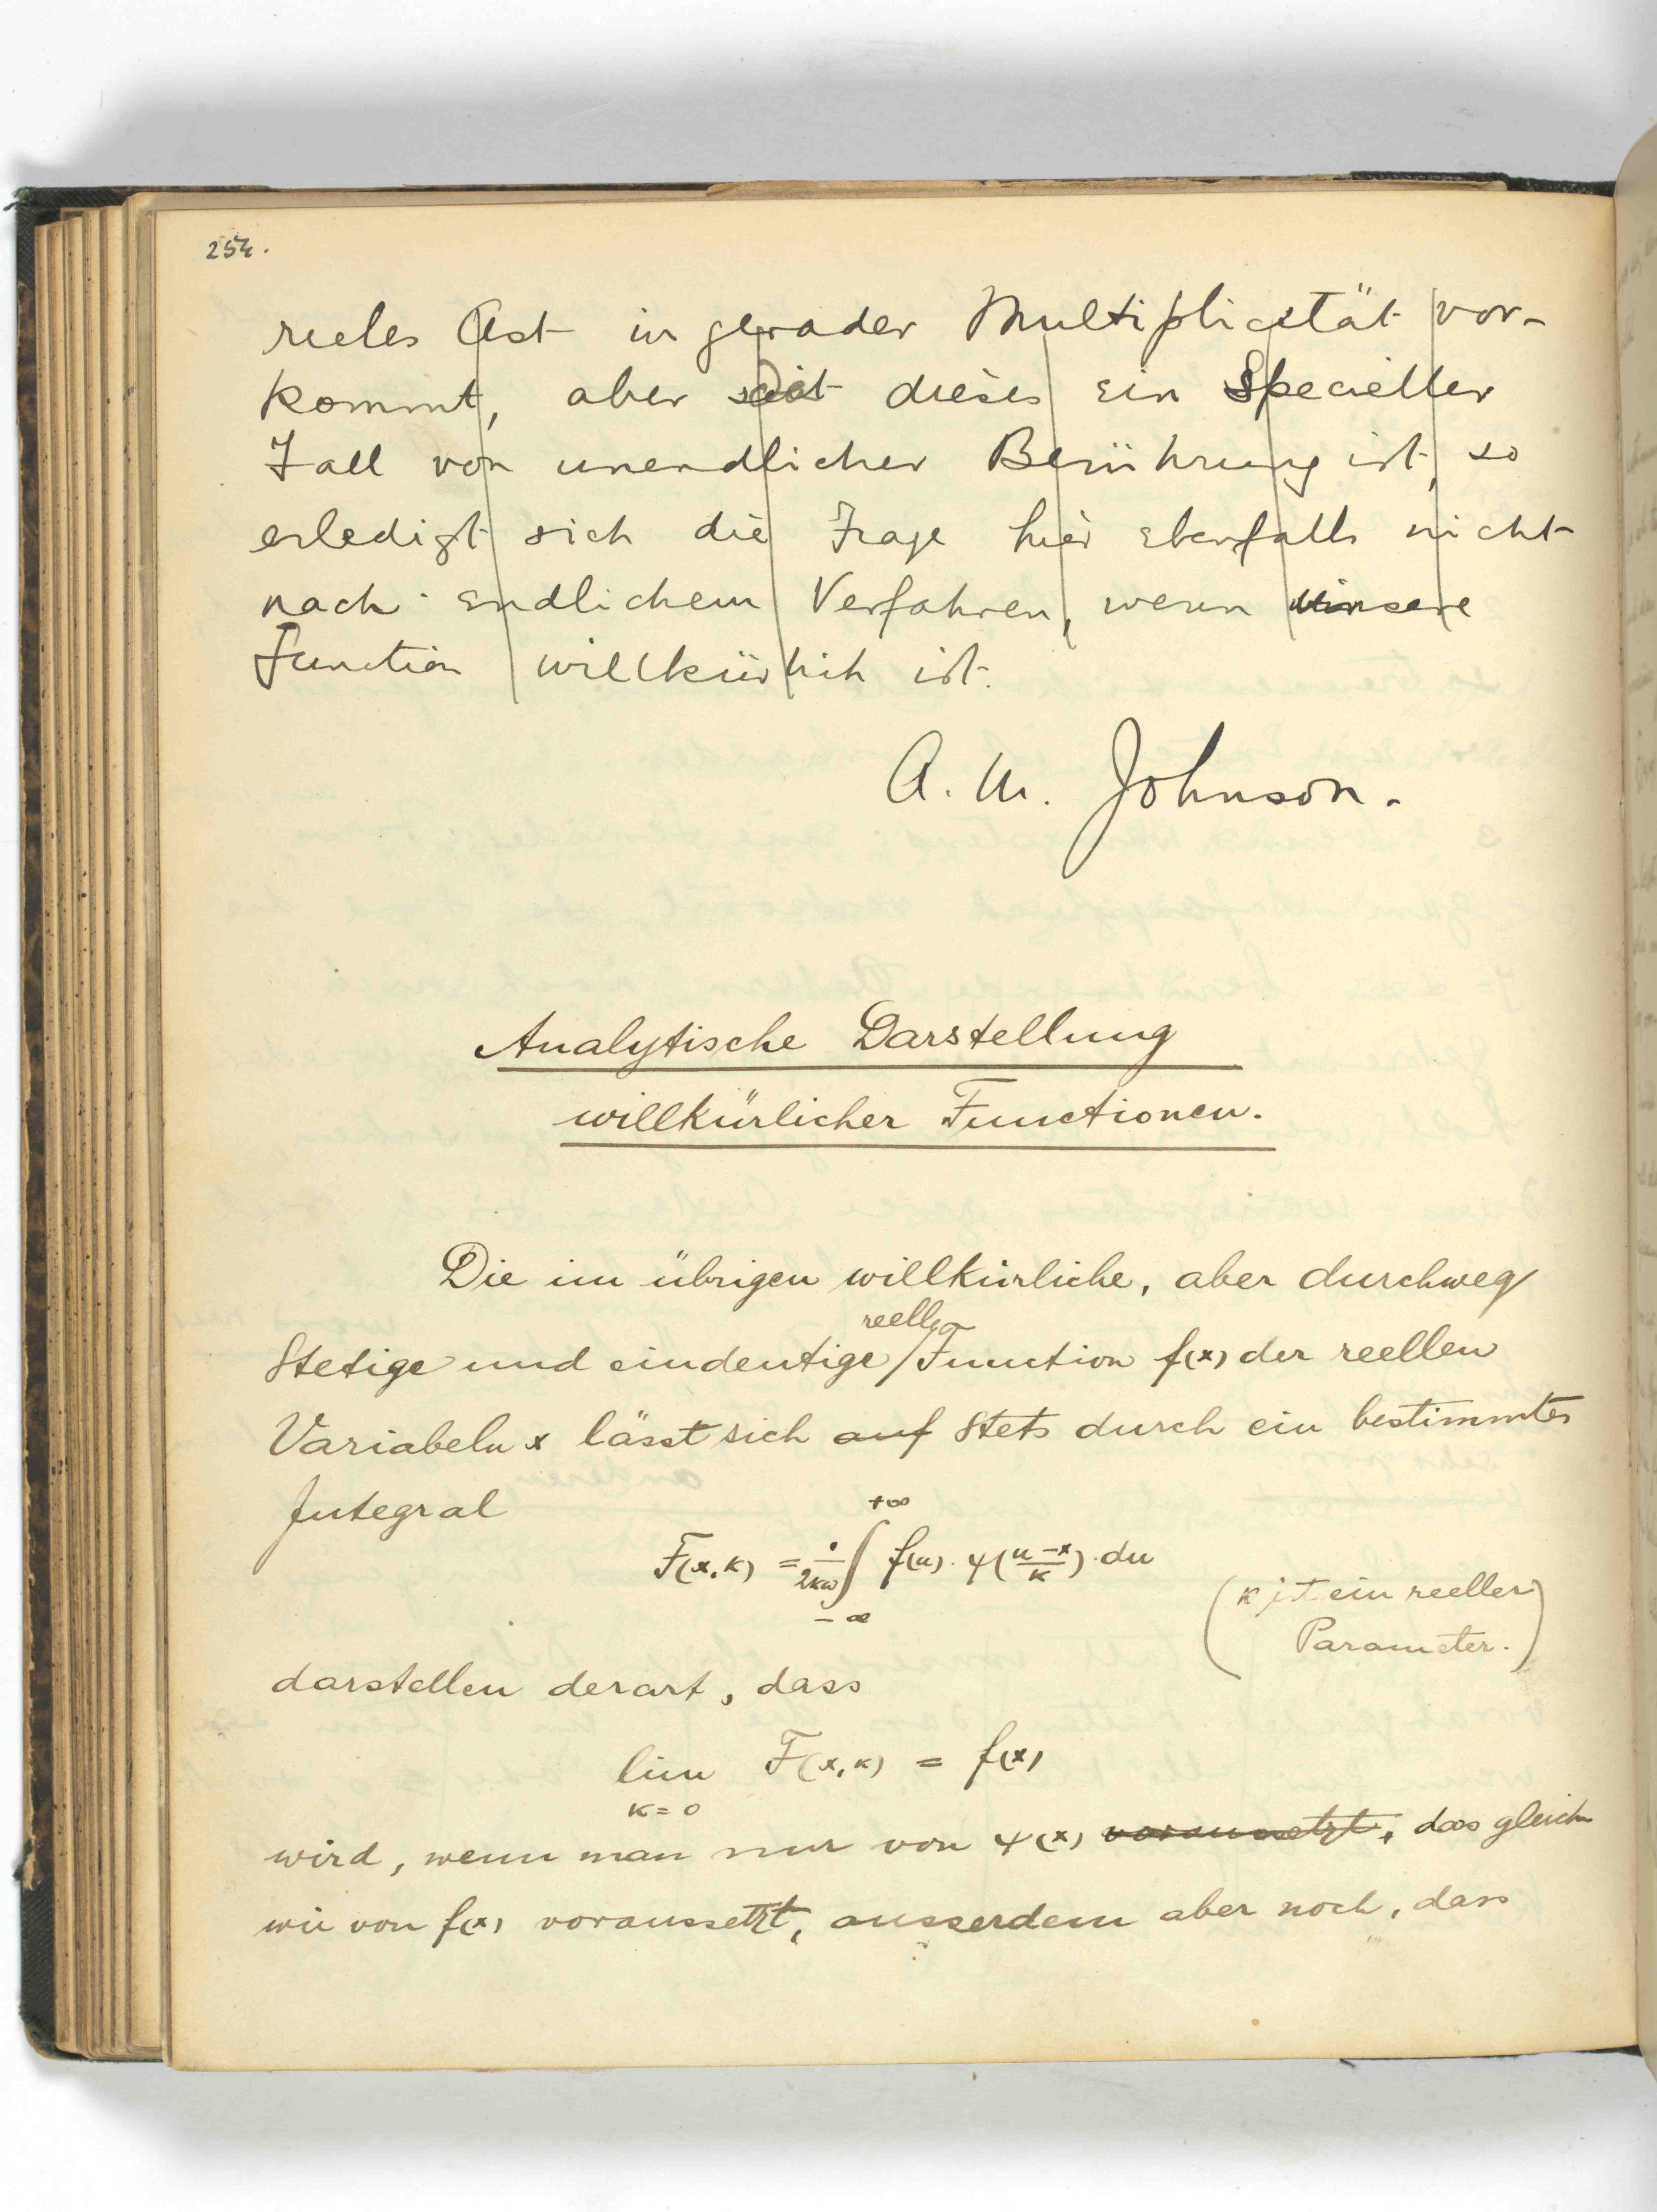 254.
reeles Ast in gerader Multiplicität vor-
kommt, aber da dieses ein Specieller
Fall von unendlicher Berührung ist, so
erledigt sich die Frage hier ebenfalls nicht
nach endlichem Verfahren, wenn unsere
Function willkürlich ist.
A. M. Johnson.
Analytische Darstellung
willkürlicher Functionen.
Die im übrigen willkürliche, aber durchweg
reelle
Stetige und eindeutige / Function f(x) der reellen
Variabeln x lässt sich auf stets durch ein bestimmtes
Integral
F(x, κ) = 1/2κω ∫_{-∞}^{+∞} f(u) · ψ((u-x)/κ) · du
(κ ist ein reeller
Parameter.)
darstellen derart, dass
lim F(x, κ) = f(x)
κ = 0
wird, wenn man nur von ψ(x) voraussetzt, das gleiche
wie von f(x) voraussetzt, ausserdem aber noch, dass